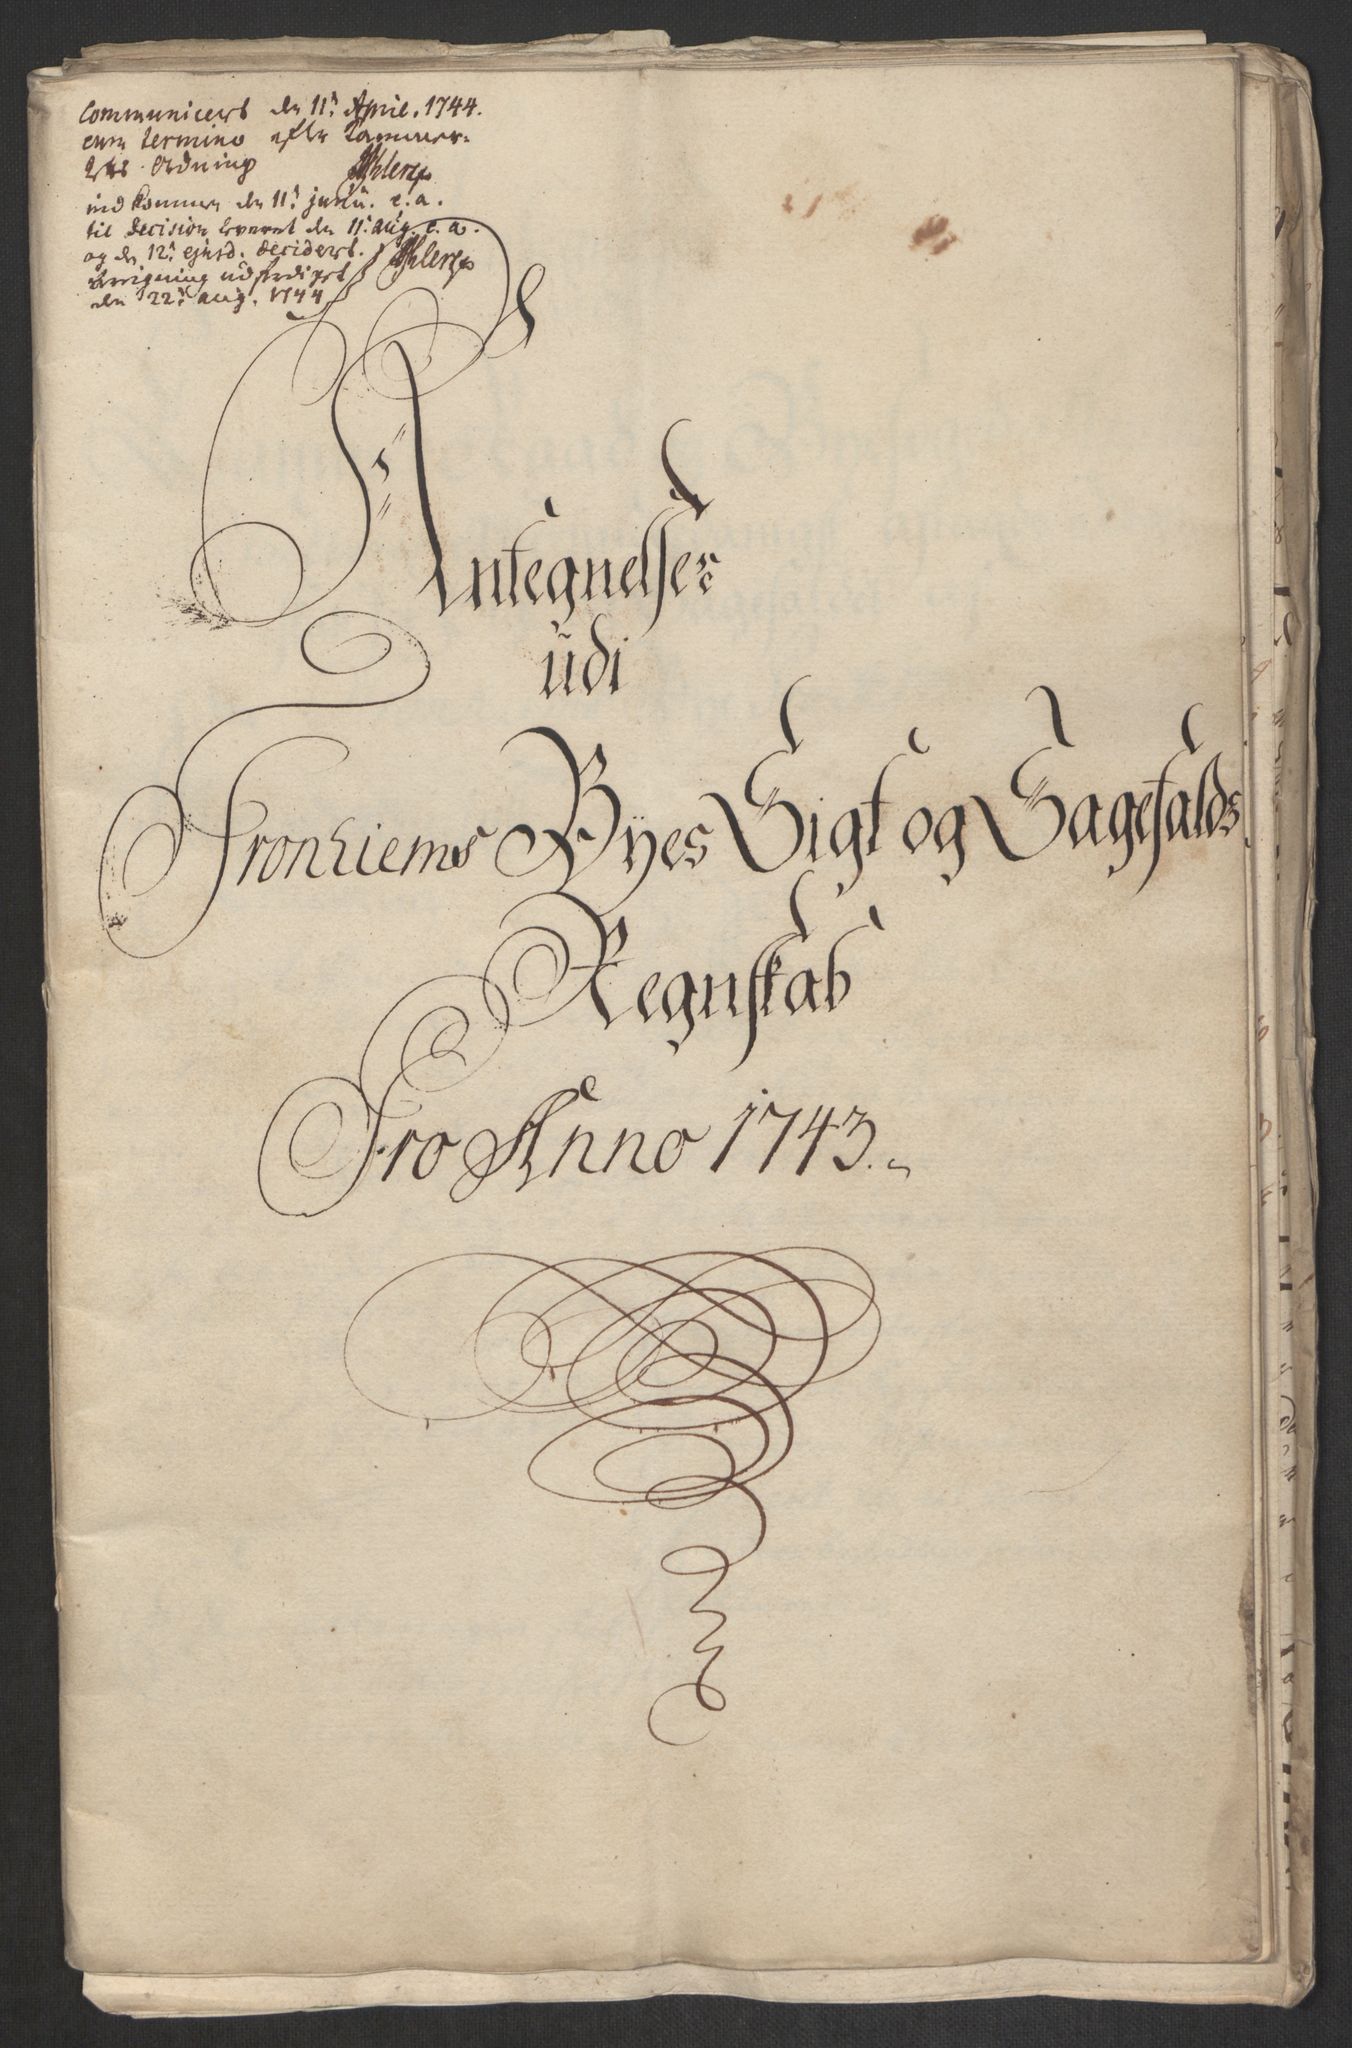 Communicert den 11te April. 1744.
cum termino efter Cammer-
Rets Ordning Ahlers
indkommen den 11te junii. e. a.
til decision leveret den 11te aug. e. a.
og den 12te ejusd. decidert. Ahlers
udferdiget
den 22de aug. 1744
Antegnelser
udi
Tronhiems Byes Sigt og Sagefalds
Regnskab
Pro Anno 1743.